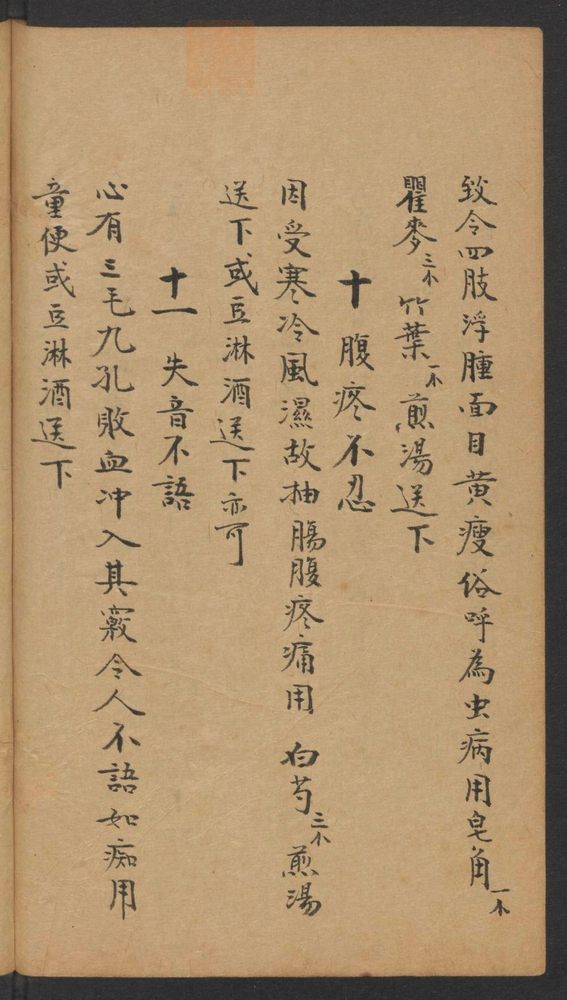 致令四肢浮腫面目黃瘦俗呼為虫病用皂角一小
瞿麥三小竹葉一小煎湯送下
十 腹疼不忍
因受寒冷風濕故抽腸腹疼痛用白芍三小煎湯
送下或豆淋酒送下亦可
十一 失音不語
心有三毛九孔敗血冲入其竅令人不語如痴用
童便或豆淋酒送下